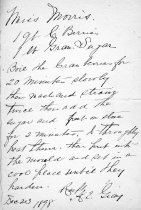 Miss Morris.
1 qt C Berries
1 lb Gran. Sugar
Boil the Cranberries for
20 minutes slowly
then mash and strain
twice then add the
sugar and put on stove
for 2 minutes, & throughly
post them. then put in
the mould and set in a
cool place until they
harden.
Gray
Dec 23 1898